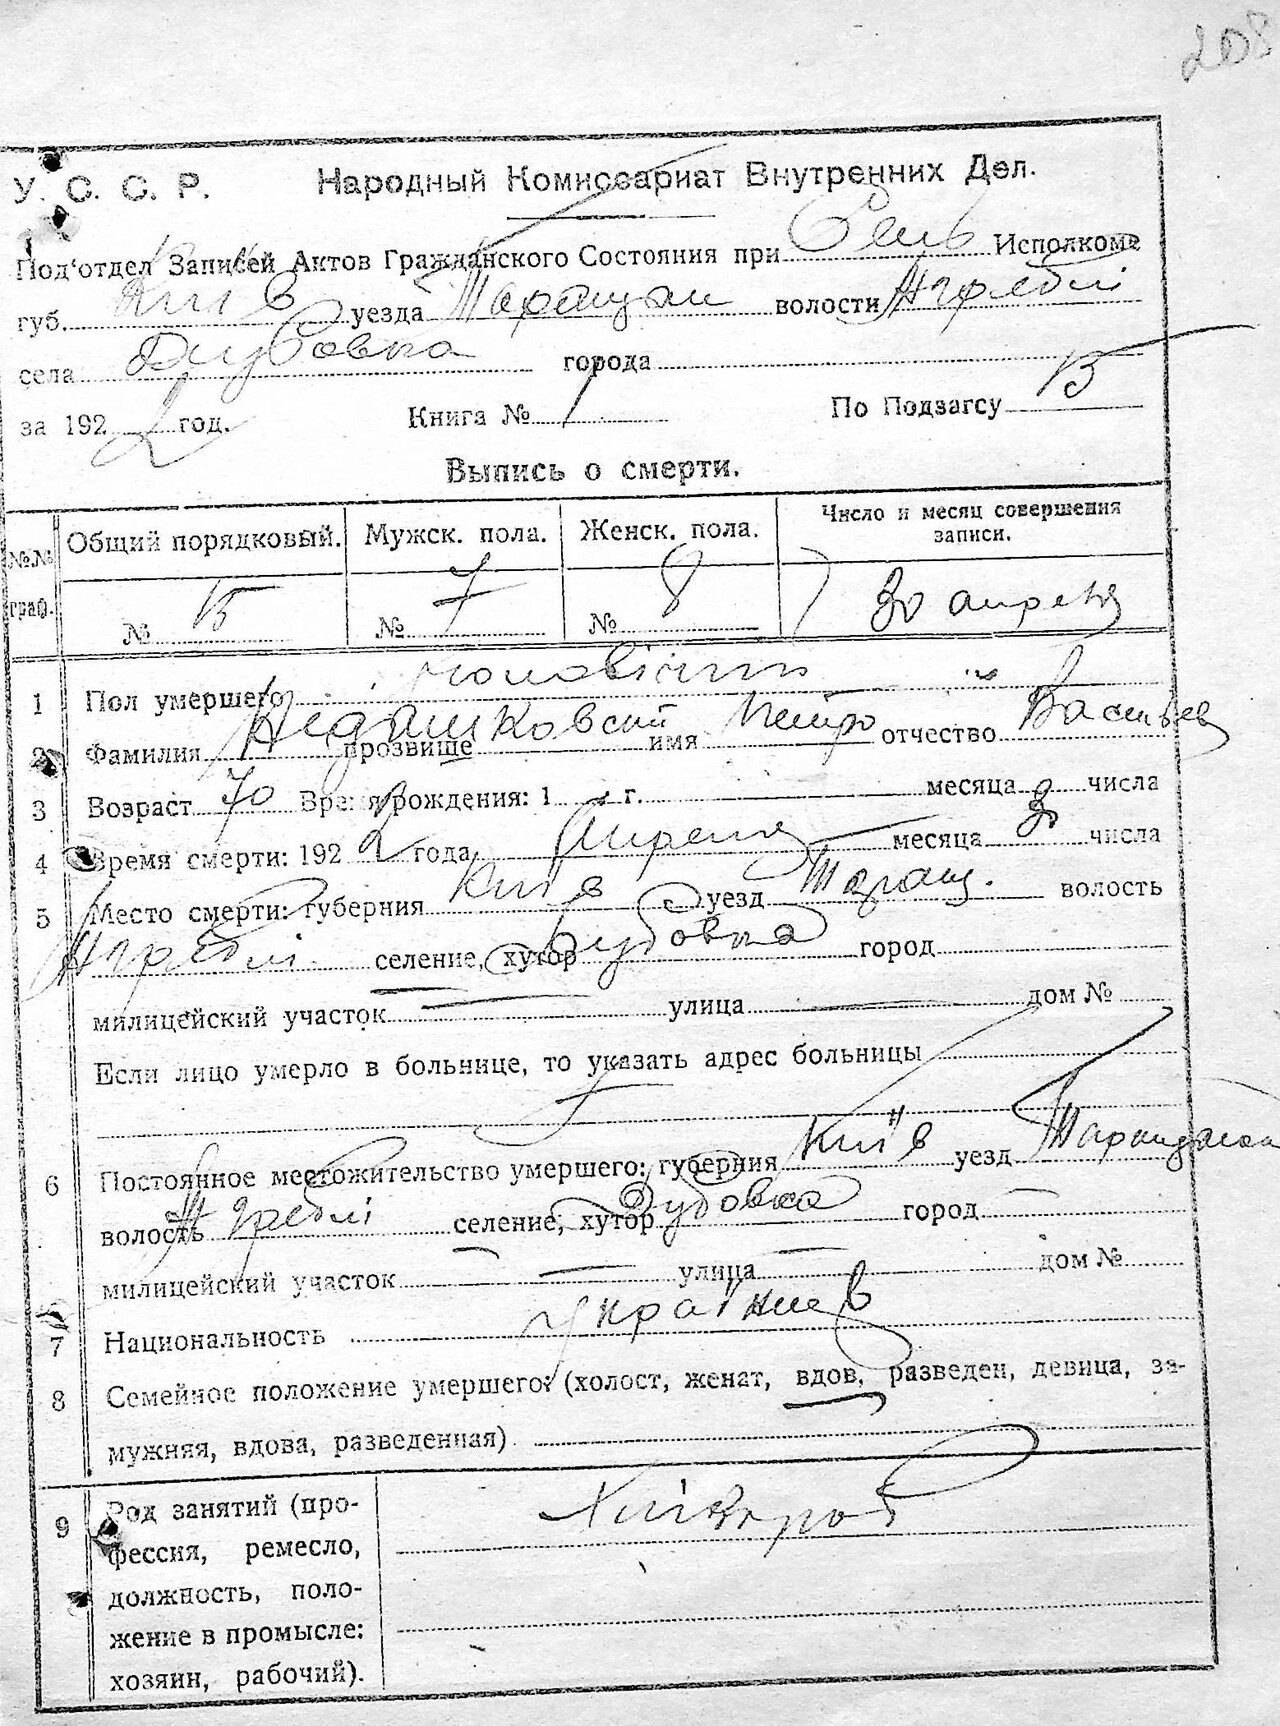 208
У. С. С. Р. Народный Комиссариат Внутренних Дел.
Под'отдел Записей Актов Гражданского Состояния при Сель Исполкоме
губ. Київ уезда Таращан волости Жгребли
села Дубовка города
за 1922 год. Книга № 1 По Подзагсу 15
Выпись о смерти.
№№ граф. Общий порядковый. Мужск. пола. Женск. пола. Число и месяц совершения записи.
№ 15 № 7 № 8 30 апреля
1 Пол умершего чоловічий
2 Фамилия прозвище Недашковский имя Петро отчество Васильев
3 Возраст 70 Время рождения: 1 г. месяца числа
4 Время смерти: 1922 года Апреля месяца 30 числа
5 Место смерти: губерния Київ уезд Таращ. волость
Жгребли селение, хутор Дубовка город
милицейский участок — улица — дом №
Если лицо умерло в больнице, то указать адрес больницы
6 Постоянное местожительство умершего: губерния Київ уезд
волость Жгребли селение, хутор Дубовка город —
милицейский участок — улица — дом №
7 Национальность Українец
8 Семейное положение умершего: (холост, женат, вдов, разведен, девица, за-
мужняя, вдова, разведенная)
9 Род занятий (про-
фессия, ремесло,
должность, поло-
жение в промысле:
хозяин, рабочий).
Хлібороб